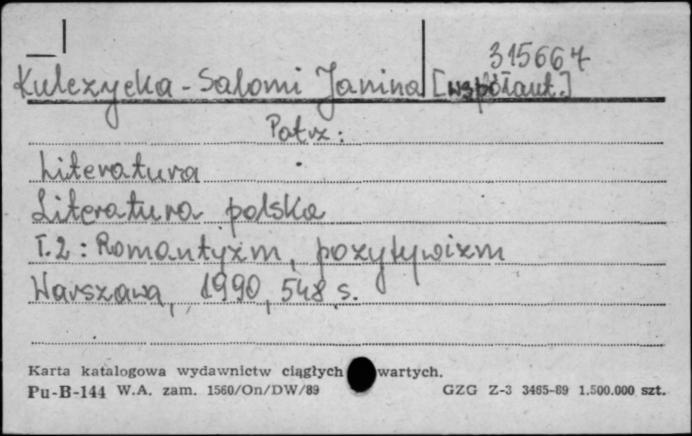 315667
Kulczycka-Salomi Janina [współaut.]
Patrz:
Literatura
Literatura polska
T.2: Romantyzm, pozytywizm
Warszawa, 1990, 548 s.
Karta katalogowa wydawnictw ciągłych wartych.
Pu-B-144 W.A. zam. 1560/On/DW/89 GZG Z-3 3465-89 1.500.000 szt.